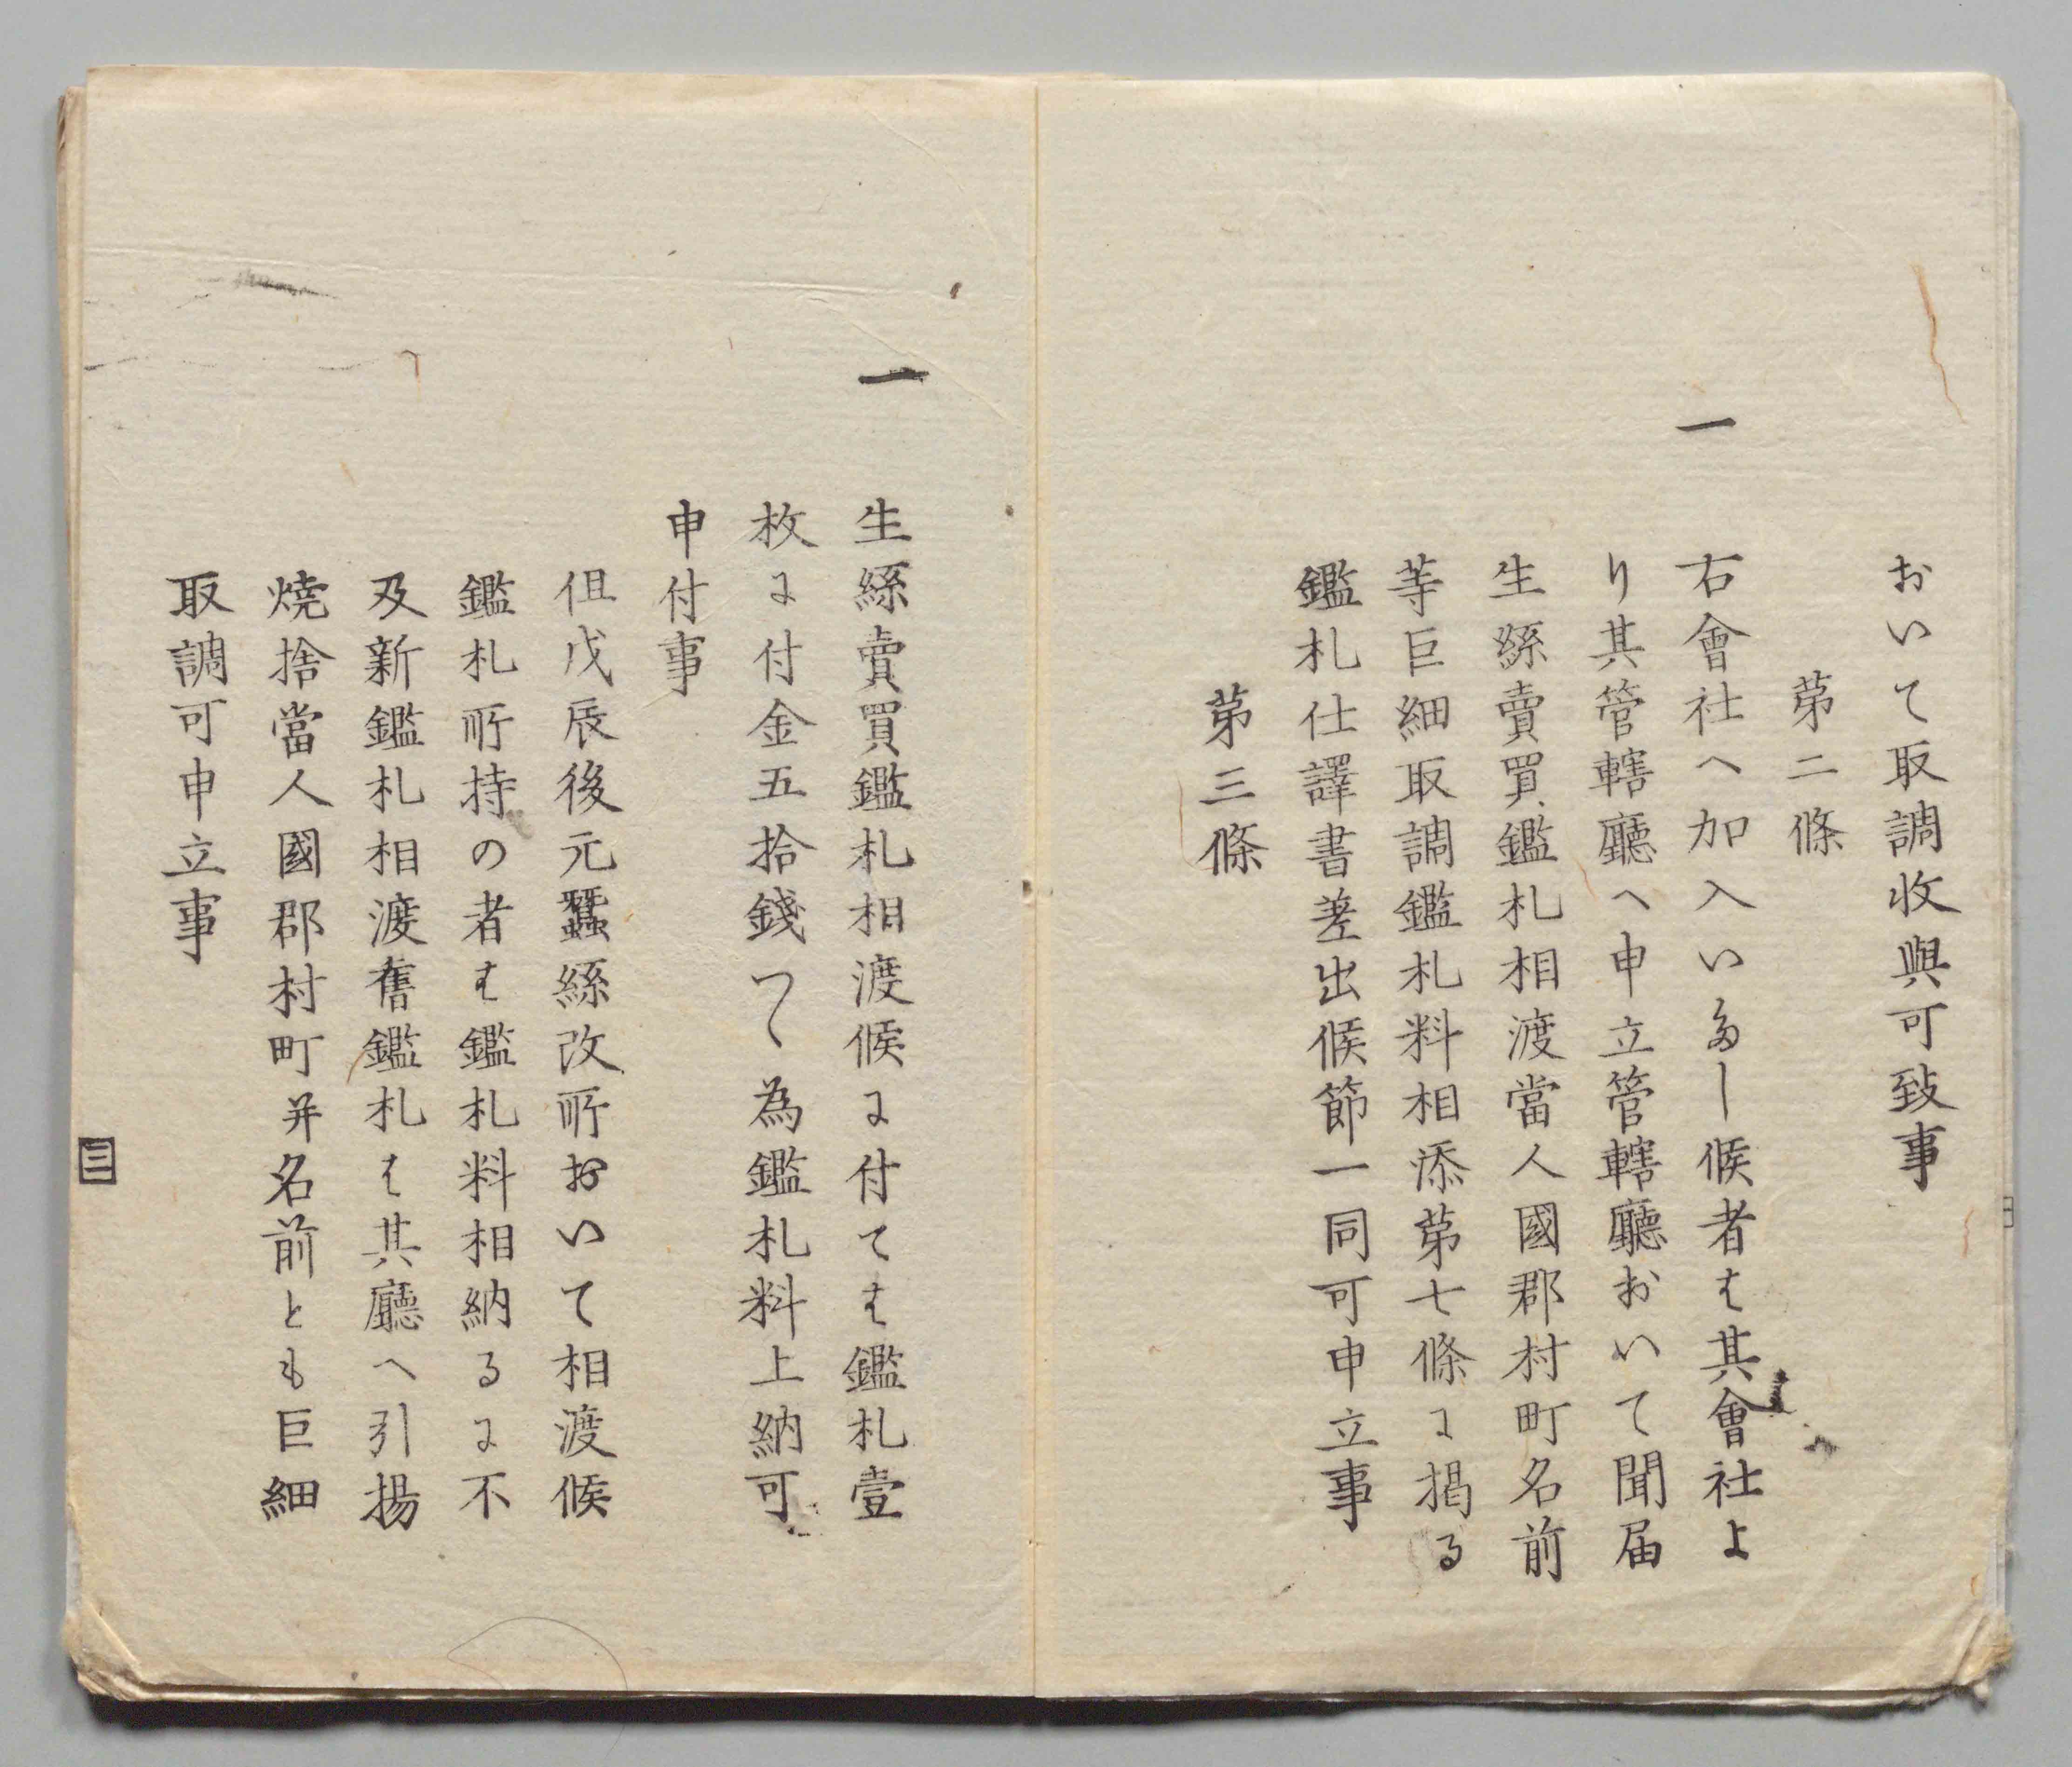 おいて取調收與可致事
第二條
一 右會社へ加入いたし候者は其會社よ
り其管轄廳へ申立管轄廳おいて聞届
生絲賣買鑑札相渡當人國郡村町名前
等巨細取調鑑札料相添第七條に掲る
鑑札仕譯書差出候節一同可申立事
第三條
一 生絲賣買鑑札相渡候に付ては鑑札壹
枚に付金五拾錢つゝ為鑑札料上納可
申付事
但戊辰後元蠶絲改所おいて相渡候
鑑札所持の者は鑑札料相納るに不
及新鑑札相渡舊鑑札は其廳へ引揚
燒捨當人國郡村町并名前とも巨細
取調可申立事
三